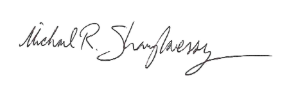 Michael R. Shaughnessy